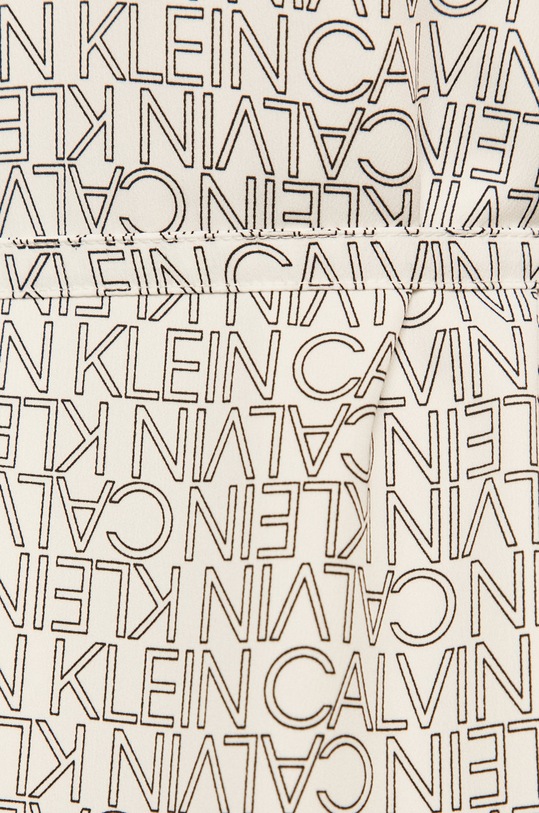 N KLEIN CALVIN
CALVIN KLEIN
CALVIN KLEIN
KLEIN CALVIN K
N KLEIN CALVIN
CALVIN KLEIN
CALVIN KLEIN
CALVIN KLEIN
N KLEIN CALVIN
CALVIN KLEIN